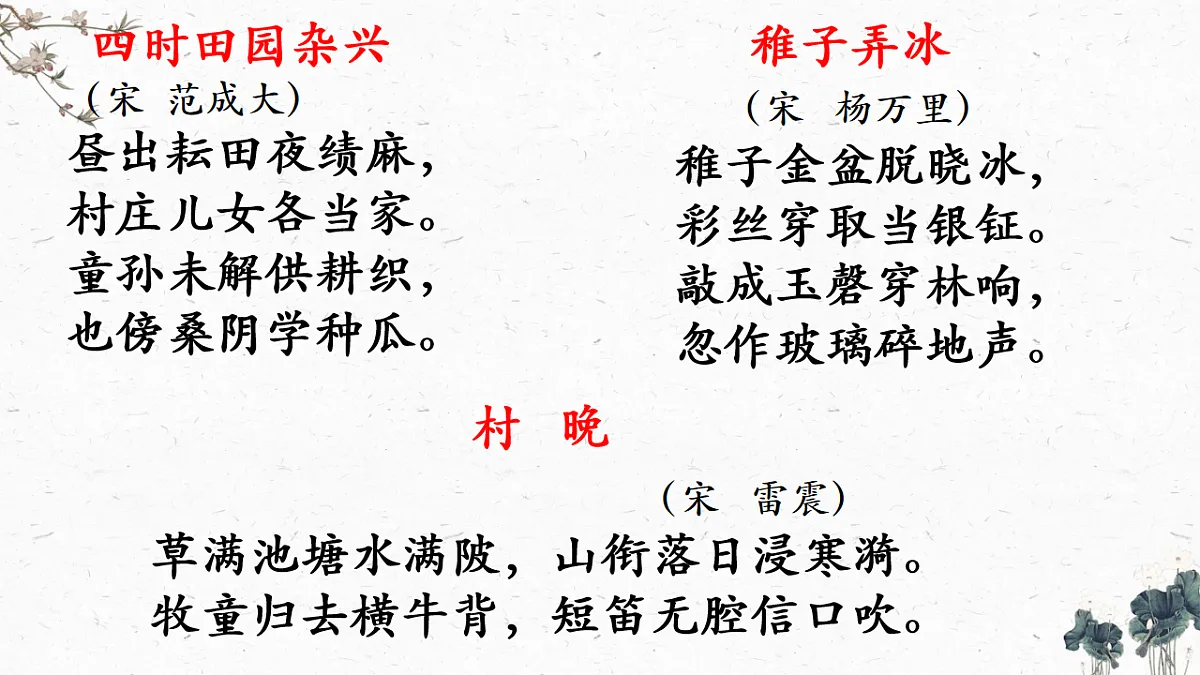 四时田园杂兴
（宋 范成大）
昼出耘田夜绩麻，
村庄儿女各当家。
童孙未解供耕织，
也傍桑阴学种瓜。
稚子弄冰
（宋 杨万里）
稚子金盆脱晓冰，
彩丝穿取当银钲。
敲成玉磬穿林响，
忽作玻璃碎地声。
村 晚
（宋 雷震）
草满池塘水满陂，山衔落日浸寒漪。
牧童归去横牛背，短笛无腔信口吹。